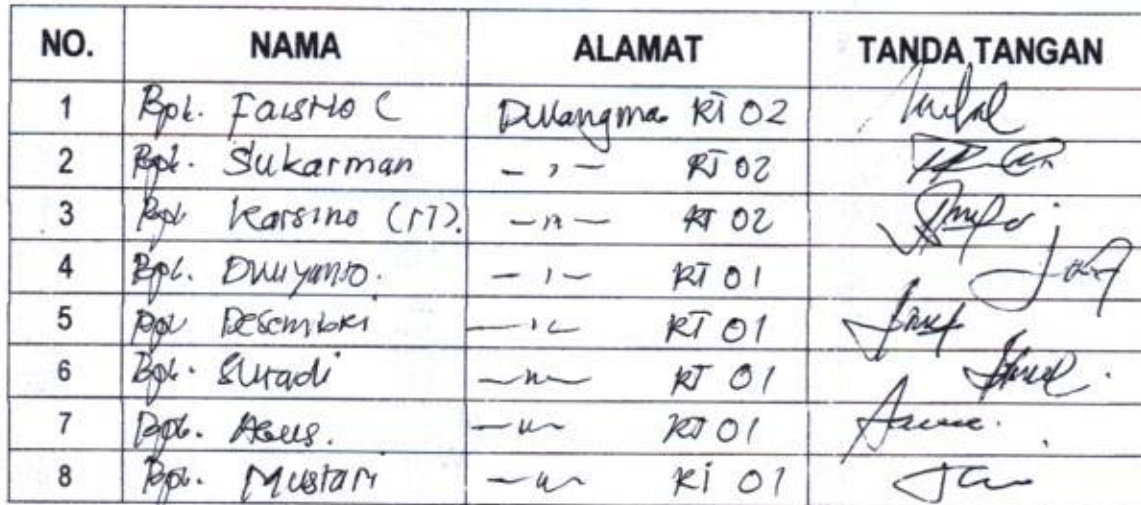 NO. NAMA ALAMAT TANDA TANGAN
1 Bpk. RT 02
2 Bpk. Sukarman - , - RT 02
3 Bpk Karsino (RT). - " - RT 02
4 Bpk. Dwiyanto. - " - RT 01
5 Bpk Desembri - " - RT 01
6 Bpk. Suradi - " - RT 01
7 Bpk. Agus. - " - RT 01
8 Bpk. Mustari - " - RT 01